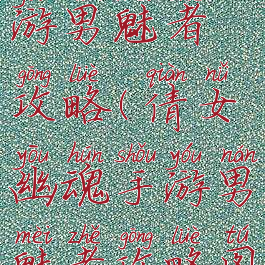 游男魅者
gōng lüè qiàn nǚ
攻略(倩女
yōu hún shǒu yóu nán
幽魂手游男
mèi zhě gōng lüè tú
魅者攻略图